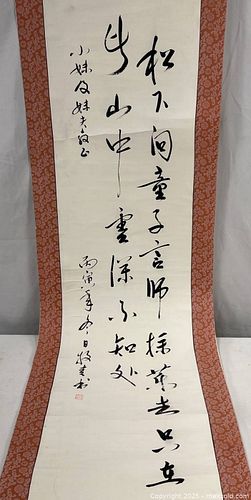 松下问童子言师採药去只在
此山中云深不知处
小妹及妹夫教正
丙寅年冬日牧
Copyright 2025 - maxsold.com